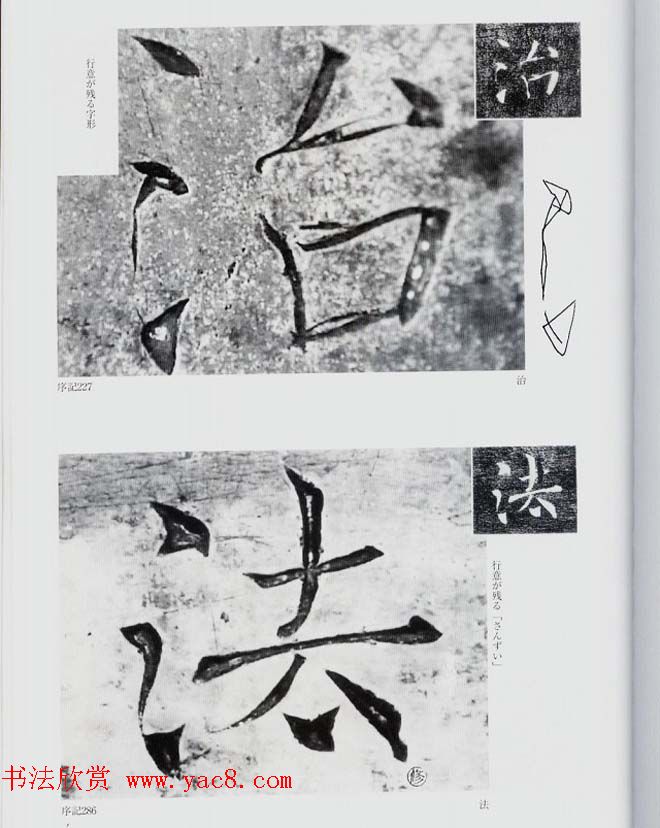 行意が残る字形
治
治
序記227
治
法
法
行意が残る「さんずい」
修
书法欣赏 www.yac8.com
序記286
法